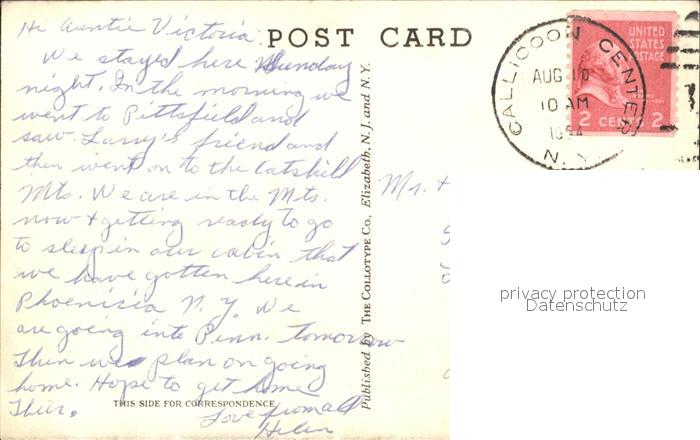 Hi Auntie Victoria:
We stayed here Sunday
night. In the morning we
went to Pittsfield and
saw Larry's friend and
then went on to the Catskill
Mts. We are in the Mts.
now + getting ready to go
to sleep in our cabin that
we have gotten here in
Phoenicia N. Y. We
are going into Penn. tomorrow
Then we plan on going
home. Hope to get home
Thur.
Love from all
Helen
THIS SIDE FOR CORRESPONDENCE
POST CARD
Published by THE COLLOTYPE CO., Elizabeth, N. J. and N. Y.
CALLICOON CENTER
AUG
10 AM
1954
N. Y.
UNITED
STATES
POSTAGE
2 CENTS 2
Mr. +
privacy protection
Datenschutz